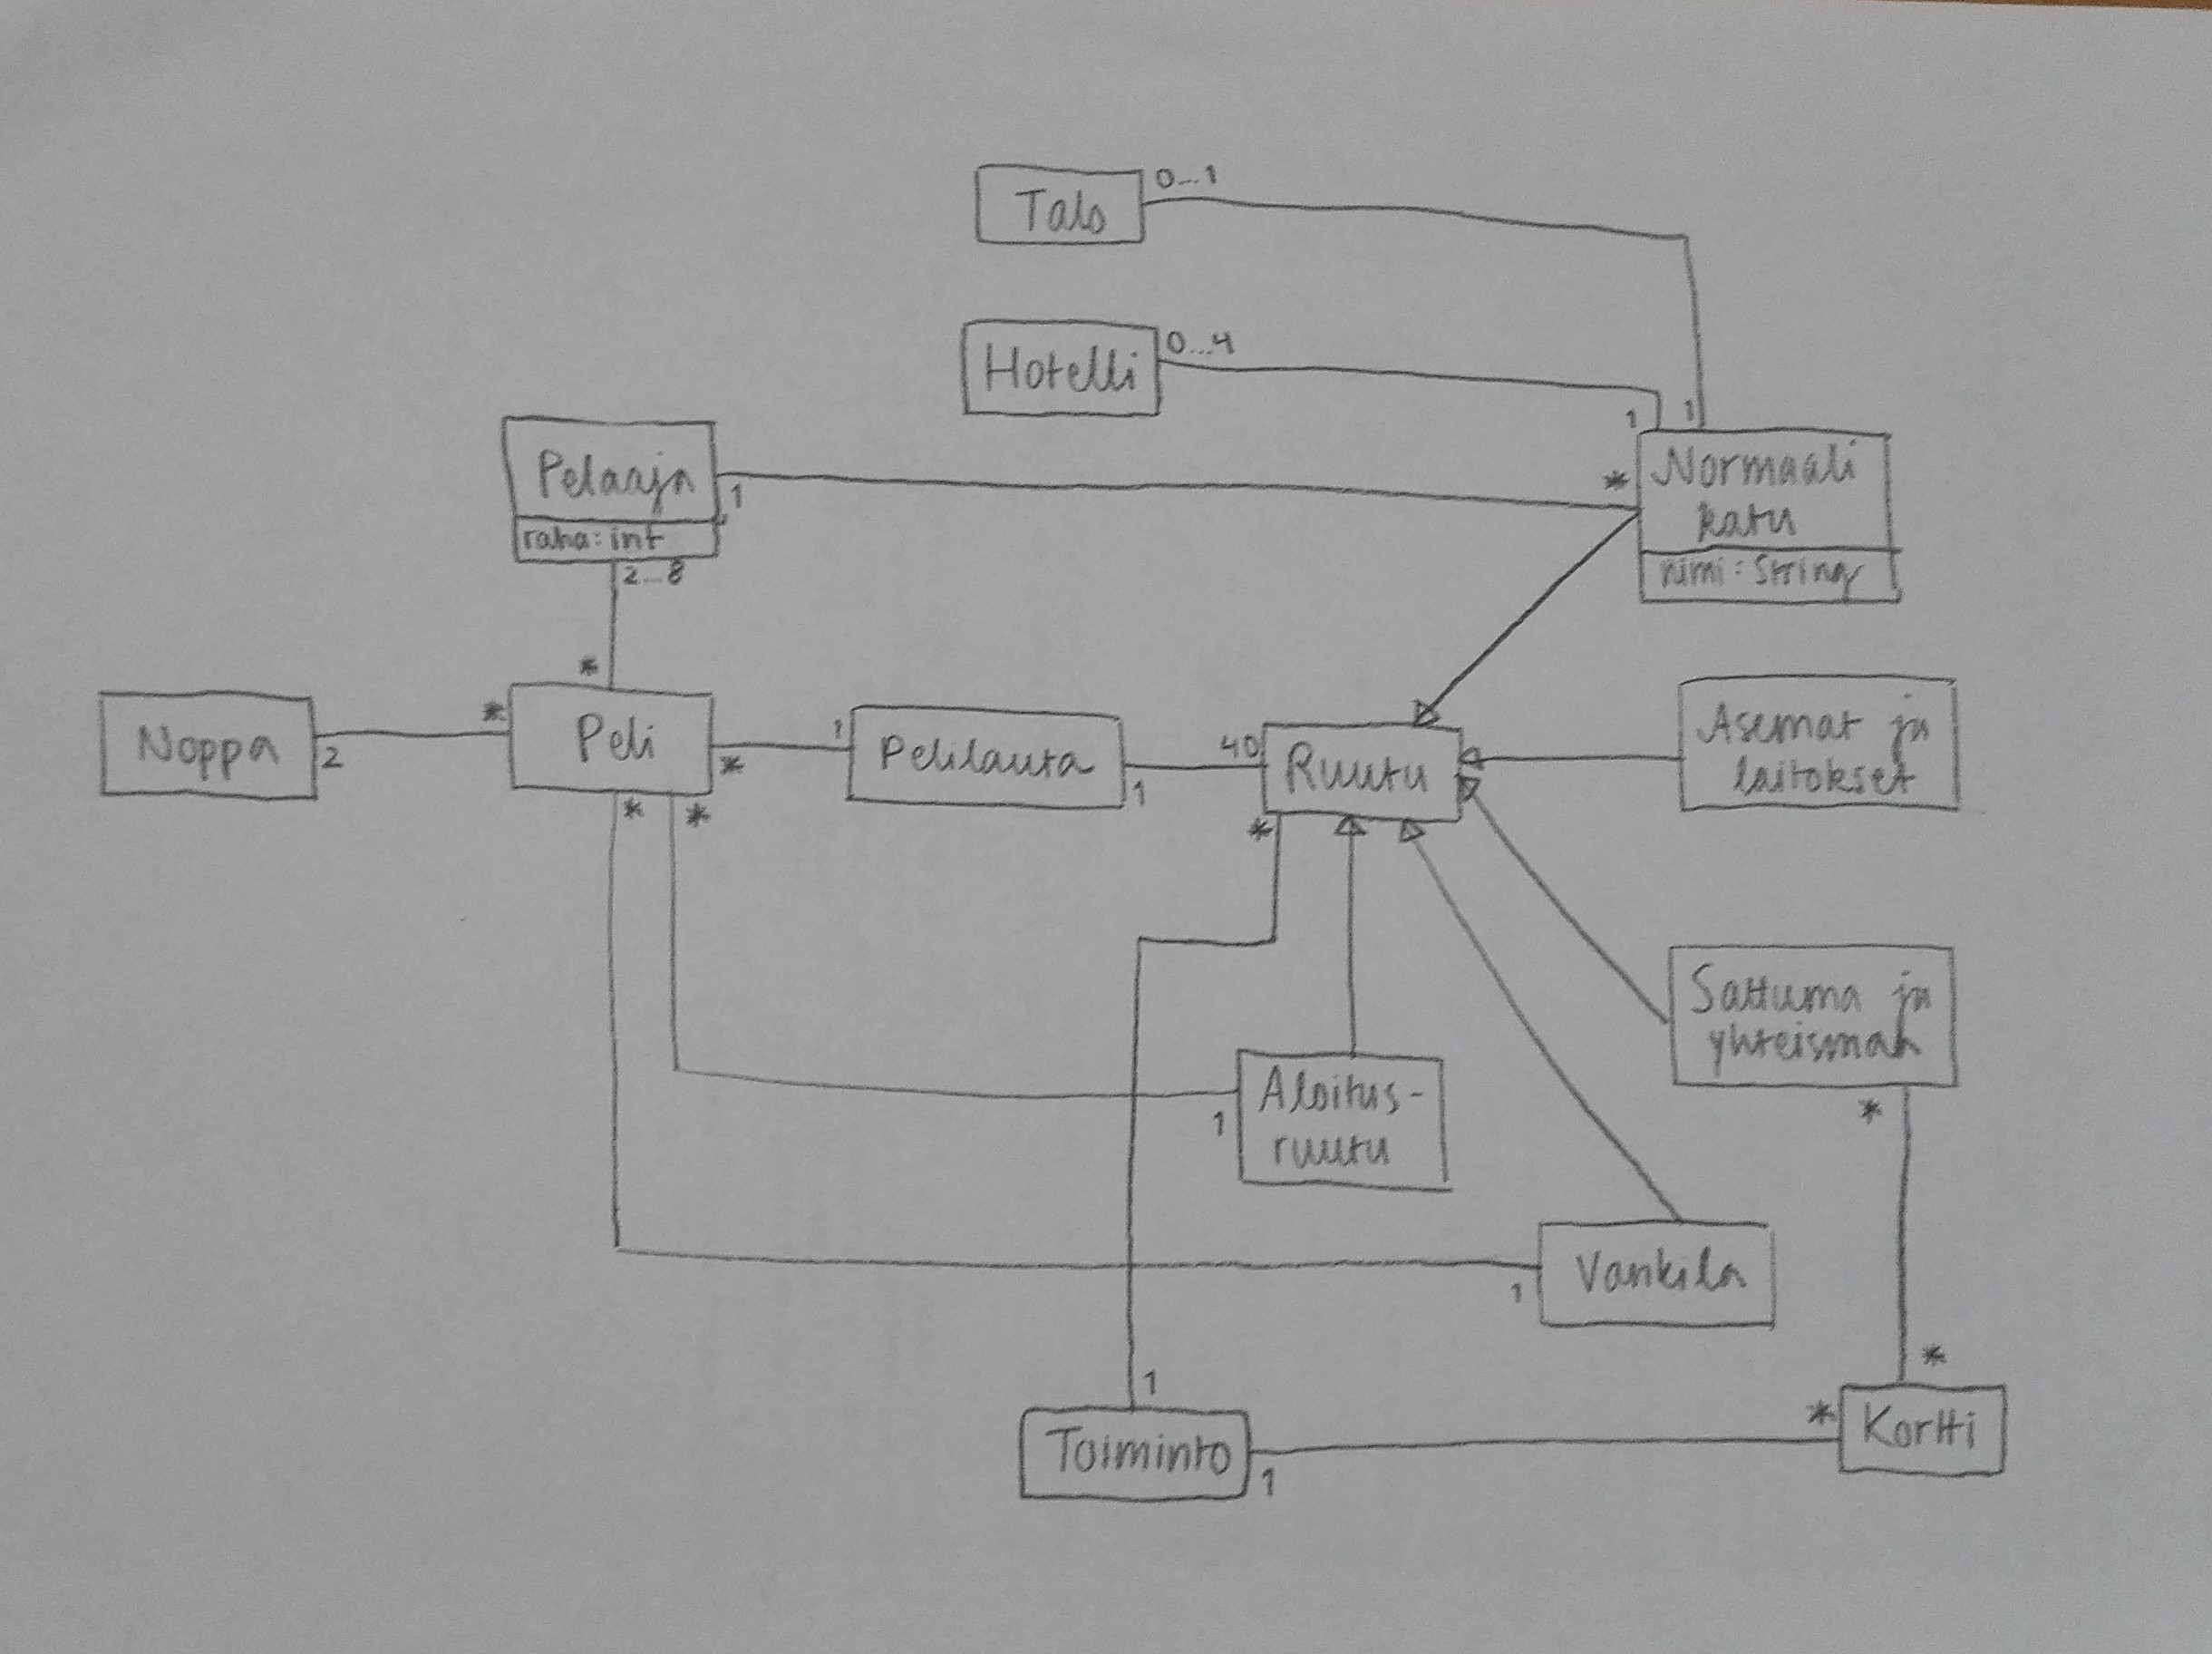 Talo
0...1
Hotelli
0...4
1
1
Pelaaja
1
raha: int
2...8
*
Normaali
katu
nimi: String
Noppa
2
*
*
Peli
*
1
Pelilauta
1
40
Ruutu
Asemat ja
laitokset
*
*
*
Sattuma ja
yhteismaa
*
Aloitus-
ruutu
1
Vankila
1
1
Toiminto
1
*
*
Kortti